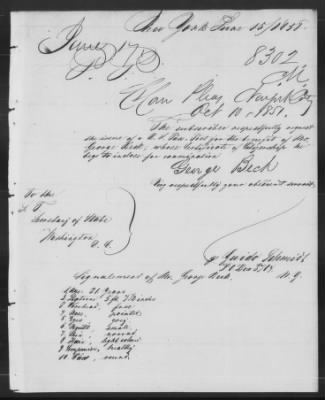 New York June 15/1858.
June 17/58
8302
Com Pleas New York City
Oct 10, 1857.
The subscriber respectfully request
the issue of a U.S. Passport for the benefit of Mr.
George Beck, whose Certificate of Citizenship he
begs to inclose for examination
George Beck
Very respectfully your obedient servant
To the
Secretary of State
Washington
D. C.
Guido
N. Y.
Signalement of Mr. George Beck.
1 Age 21 Years
2 Stature 5 ft 7 Inches
3 Forehead, free
4 Nose,
5 Eyes grey
6 Mouth small
7 Chin round
8 Hair, light
9 Complexion, healthy
10 Face, round.